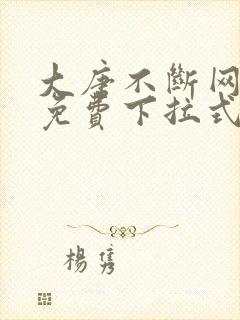 大唐不断网
免費下拉式
楊隽